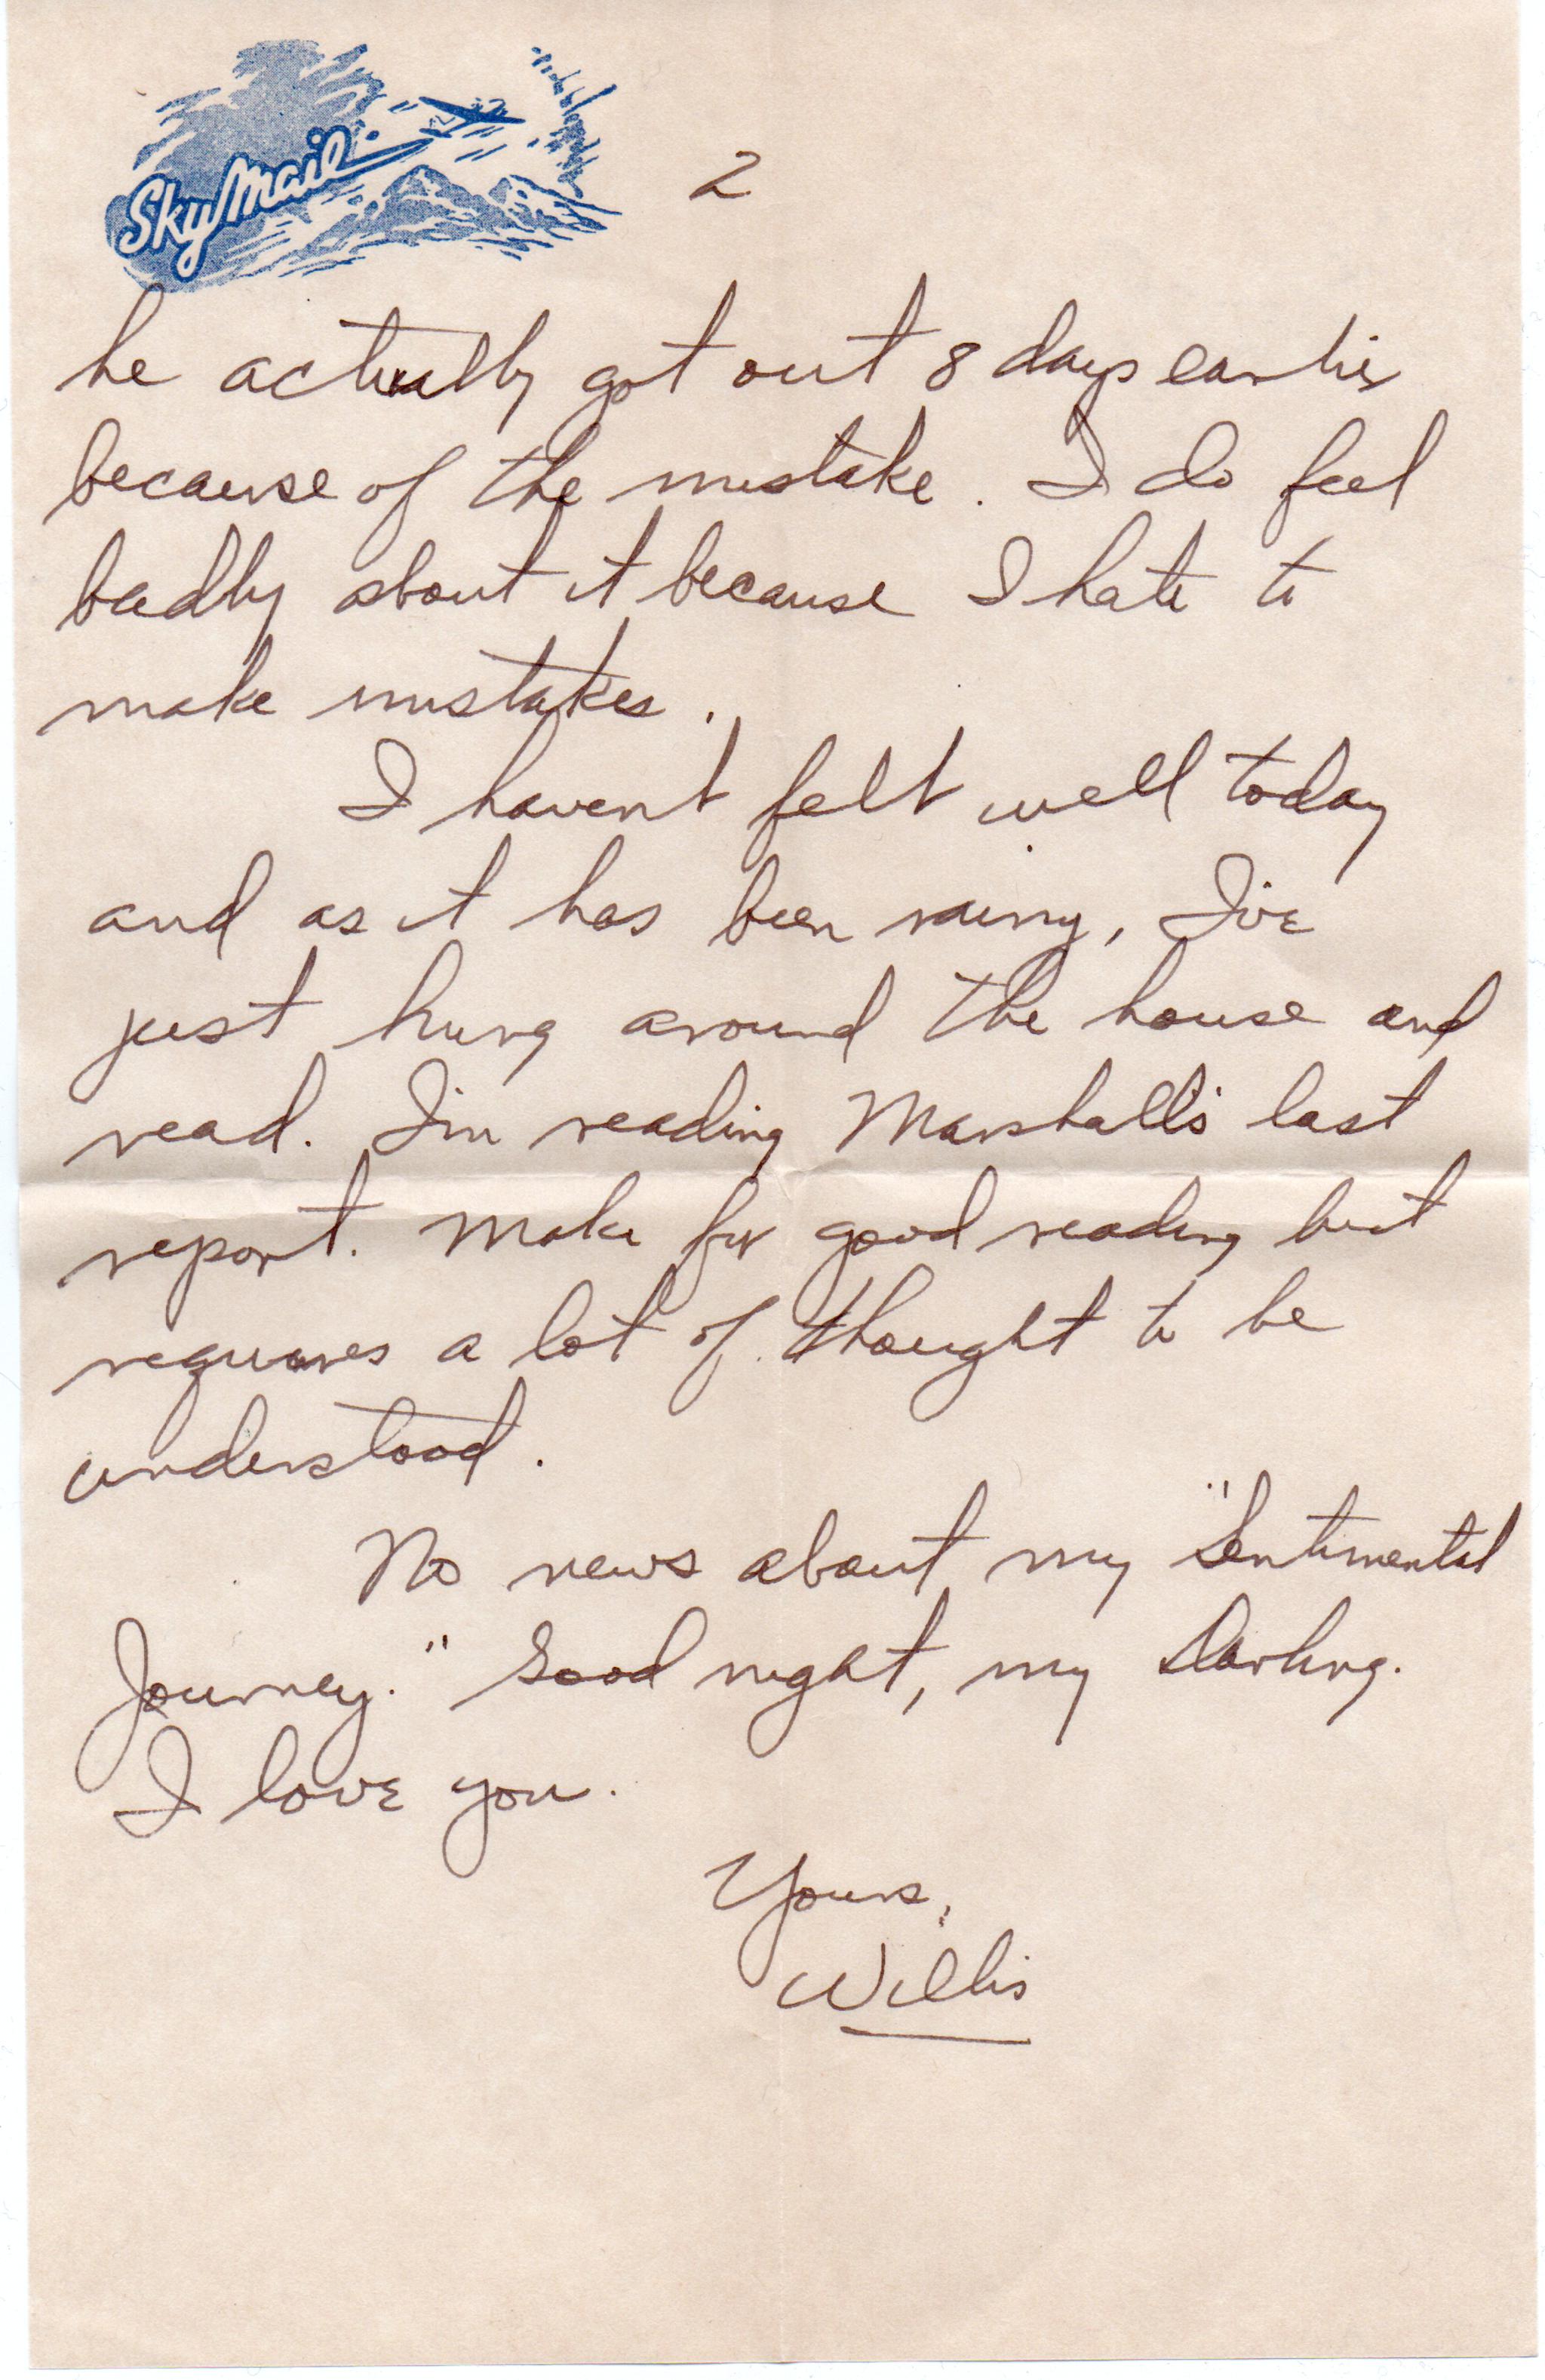 Sky Mail
2
he actually got out 8 days earlier
because of the mistake. I do feel
badly about it because I hate to
make mistakes.
I haven't felt well today
and as it has been rainy, I've
just hung around the house and
read. I'm reading Marshall's last
report. Make for good reading but
requires a lot of thought to be
understood.
No news about my "Sentimental
Journey." Good night, my Darling.
I love you.
Yours,
Willis